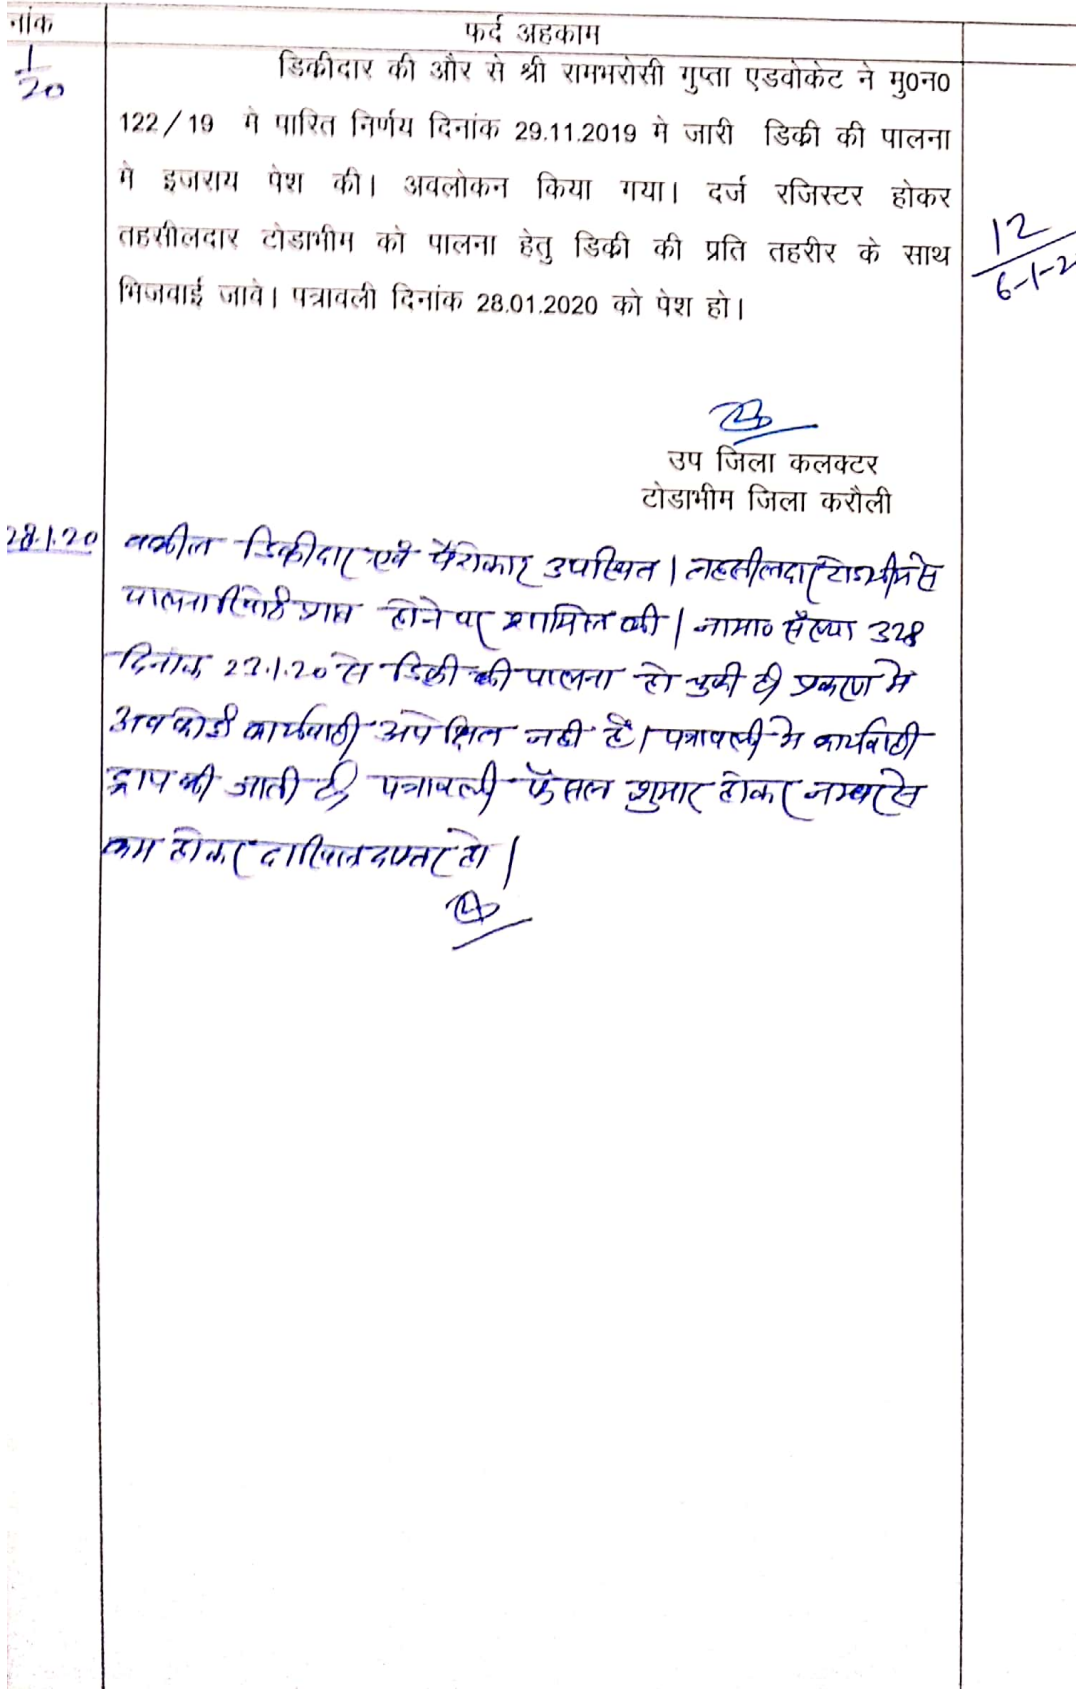 नांक
फर्द अहकाम
1
20
डिकीदार की और से श्री रामभरोसी गुप्ता एडवोकेट ने मु0न0
122/19 मे पारित निर्णय दिनांक 29.11.2019 मे जारी डिकी की पालना
मे इजराय पेश की। अवलोकन किया गया। दर्ज रजिस्टर होकर
तहसीलदार टोडाभीम को पालना हेतु डिकी की प्रति तहरीर के साथ
भिजवाई जावे। पत्रावली दिनांक 28.01.2020 को पेश हो।
12
6-1-2
उप जिला कलक्टर
टोडाभीम जिला करौली
28.1.20
वकील डिकीदार एवं पैरोकार उपस्थित। तहसीलदार टोडाभीम से
पालना रिपोर्ट प्राप्त होने पर शामिल की। नामा० संख्या 328
दिनांक 23.1.20 से डिकी की पालना हो चुकी है। प्रकरण मे
अब कोई कार्यवाही अपेक्षित नही है। पत्रावली मे कार्यवाही
ड्राप की जाती है। पत्रावली फैसल शुमार होकर नम्बर से
कम होकर दाखिल दफ्तर हो।